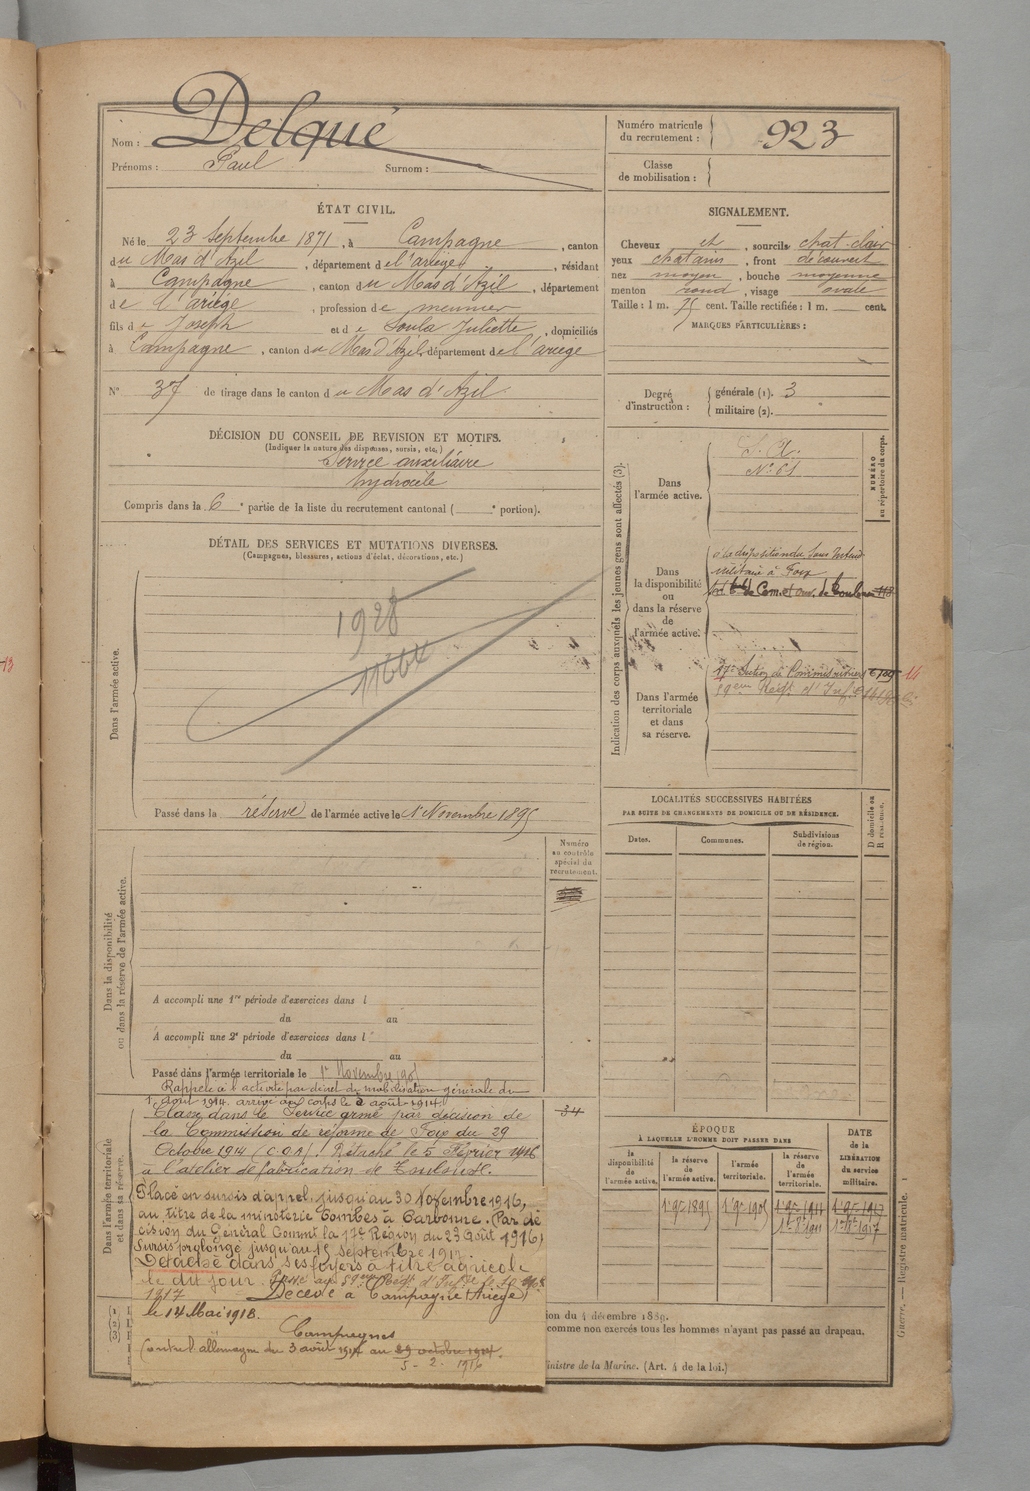 Nom : Delqué
Prénoms : Paul Surnom :
Numéro matricule du recrutement : 923
Classe de mobilisation :
ÉTAT CIVIL.
Né le 23 Septembre 1871, à Campagne, canton
du Mas d'Azil, département de l'ariège, résidant
à Campagne, canton du Mas d'Azil, département
de l'ariège, profession de meunier
fils de Joseph et de Soula Juliette, domiciliés
à Campagne, canton du Mas d'Azil, département de l'ariège
N° 37 de tirage dans le canton du Mas d'Azil
DÉCISION DU CONSEIL DE REVISION ET MOTIFS.
(Indiquer la nature des dispenses, sursis, etc.)
Service auxiliaire
hydrocèle
Compris dans la 6e partie de la liste du recrutement cantonal ( e portion).
SIGNALEMENT.
Cheveux et, sourcils chat-clair
yeux chatains, front découvert
nez moyen, bouche moyenne
menton rond, visage ovale
Taille : 1 m. 75 cent. Taille rectifiée : 1 m. cent.
MARQUES PARTICULIÈRES :
Degré d'instruction : générale (1). 3
militaire (2).
DÉTAIL DES SERVICES ET MUTATIONS DIVERSES.
(Campagnes, blessures, actions d'éclat, décorations, etc.)
Dans l'armée active.
1928
11664
Passé dans la réserve de l'armée active le 1r Novembre 1895
Indication des corps auxquels les jeunes gens sont affectés (3).
NUMÉRO au répertoire du corps.
Dans l'armée active.
S. A.
N° 61
Dans la disponibilité ou dans la réserve de l'armée active.
à la disposition du Sous Intend
militaire à Foix
de Com. et ouv. de Toulouse 118
Dans l'armée territoriale et dans sa réserve.
17e Section de Commis ouvriers 14
59eme Régt d'Inf.
LOCALITÉS SUCCESSIVES HABITÉES
PAR SUITE DE CHANGEMENTS DE DOMICILE OU DE RÉSIDENCE.
Dates. Communes. Subdivisions de région. D domicile ou R résidence.
Dans la disponibilité ou dans la réserve de l'armée active.
Numéro au contrôle spécial du recrutement.
A accompli une 1re période d'exercices dans l
du au
A accompli une 2e période d'exercices dans l
du au
Passé dans l'armée territoriale le 1r Novembre 1905
Dans l'armée territoriale et dans sa réserve.
34
Rappelé à l'activité par décret de mobilisation générale du
1r août 1914. arrivé au corps le 3 août 1914.
Classé dans le Service armé par décision de
la Commission de réforme de Foix du 29
Octobre 1914 (C.O.A). Détaché le 5 Février 1916
à l'atelier de fabrication de Toulouse.
Placé en sursis d'appel, jusqu'au 30 Novembre 1916,
au titre de la minoterie Combes à Carbonne. (Par dé
cision du Général Commt la 17e Région du 23 Août 1916)
Sursis prolongé jusqu'au 15 septembre 1917.
Détaché dans ses foyers à titre agricole
le du jour. Passé au 59eme Régt d'Infie le
1917 Décédé à Campagne (Ariège)
le 14 Mai 1918.
Campagnes
Contre l'allemagne du 3 août 1914 au 29 octobre 1914.
5 - 2. 1916
ÉPOQUE
À LAQUELLE L'HOMME DOIT PASSER DANS
la disponibilité de l'armée active. la réserve de l'armée active. l'armée territoriale. la réserve de l'armée territoriale.
DATE de la LIBÉRATION du service militaire.
1r 9bre 1895 1r 9bre 1905 1r 9bre 1911 1r 9bre 1917
1r 8bre 1911 1r 8bre 1917
ion du 4 décembre 1889.
comme non exercés tous les hommes n'ayant pas passé au drapeau.
inistre de la Marine. (Art. 4 de la loi.)
Guerre. — Registre matricule. 1
13